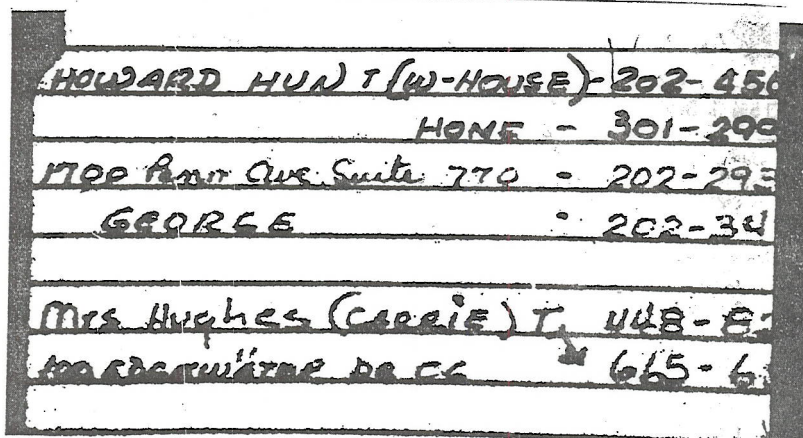 HOWARD HUNT (W-HOUSE)-202-456
HOME - 301-299
1700 Penn Ave Suite 770 - 202-293
GEORGE - 202-34
Mrs Hughes (CARRIE) T. 448-8
DR CG 665-6